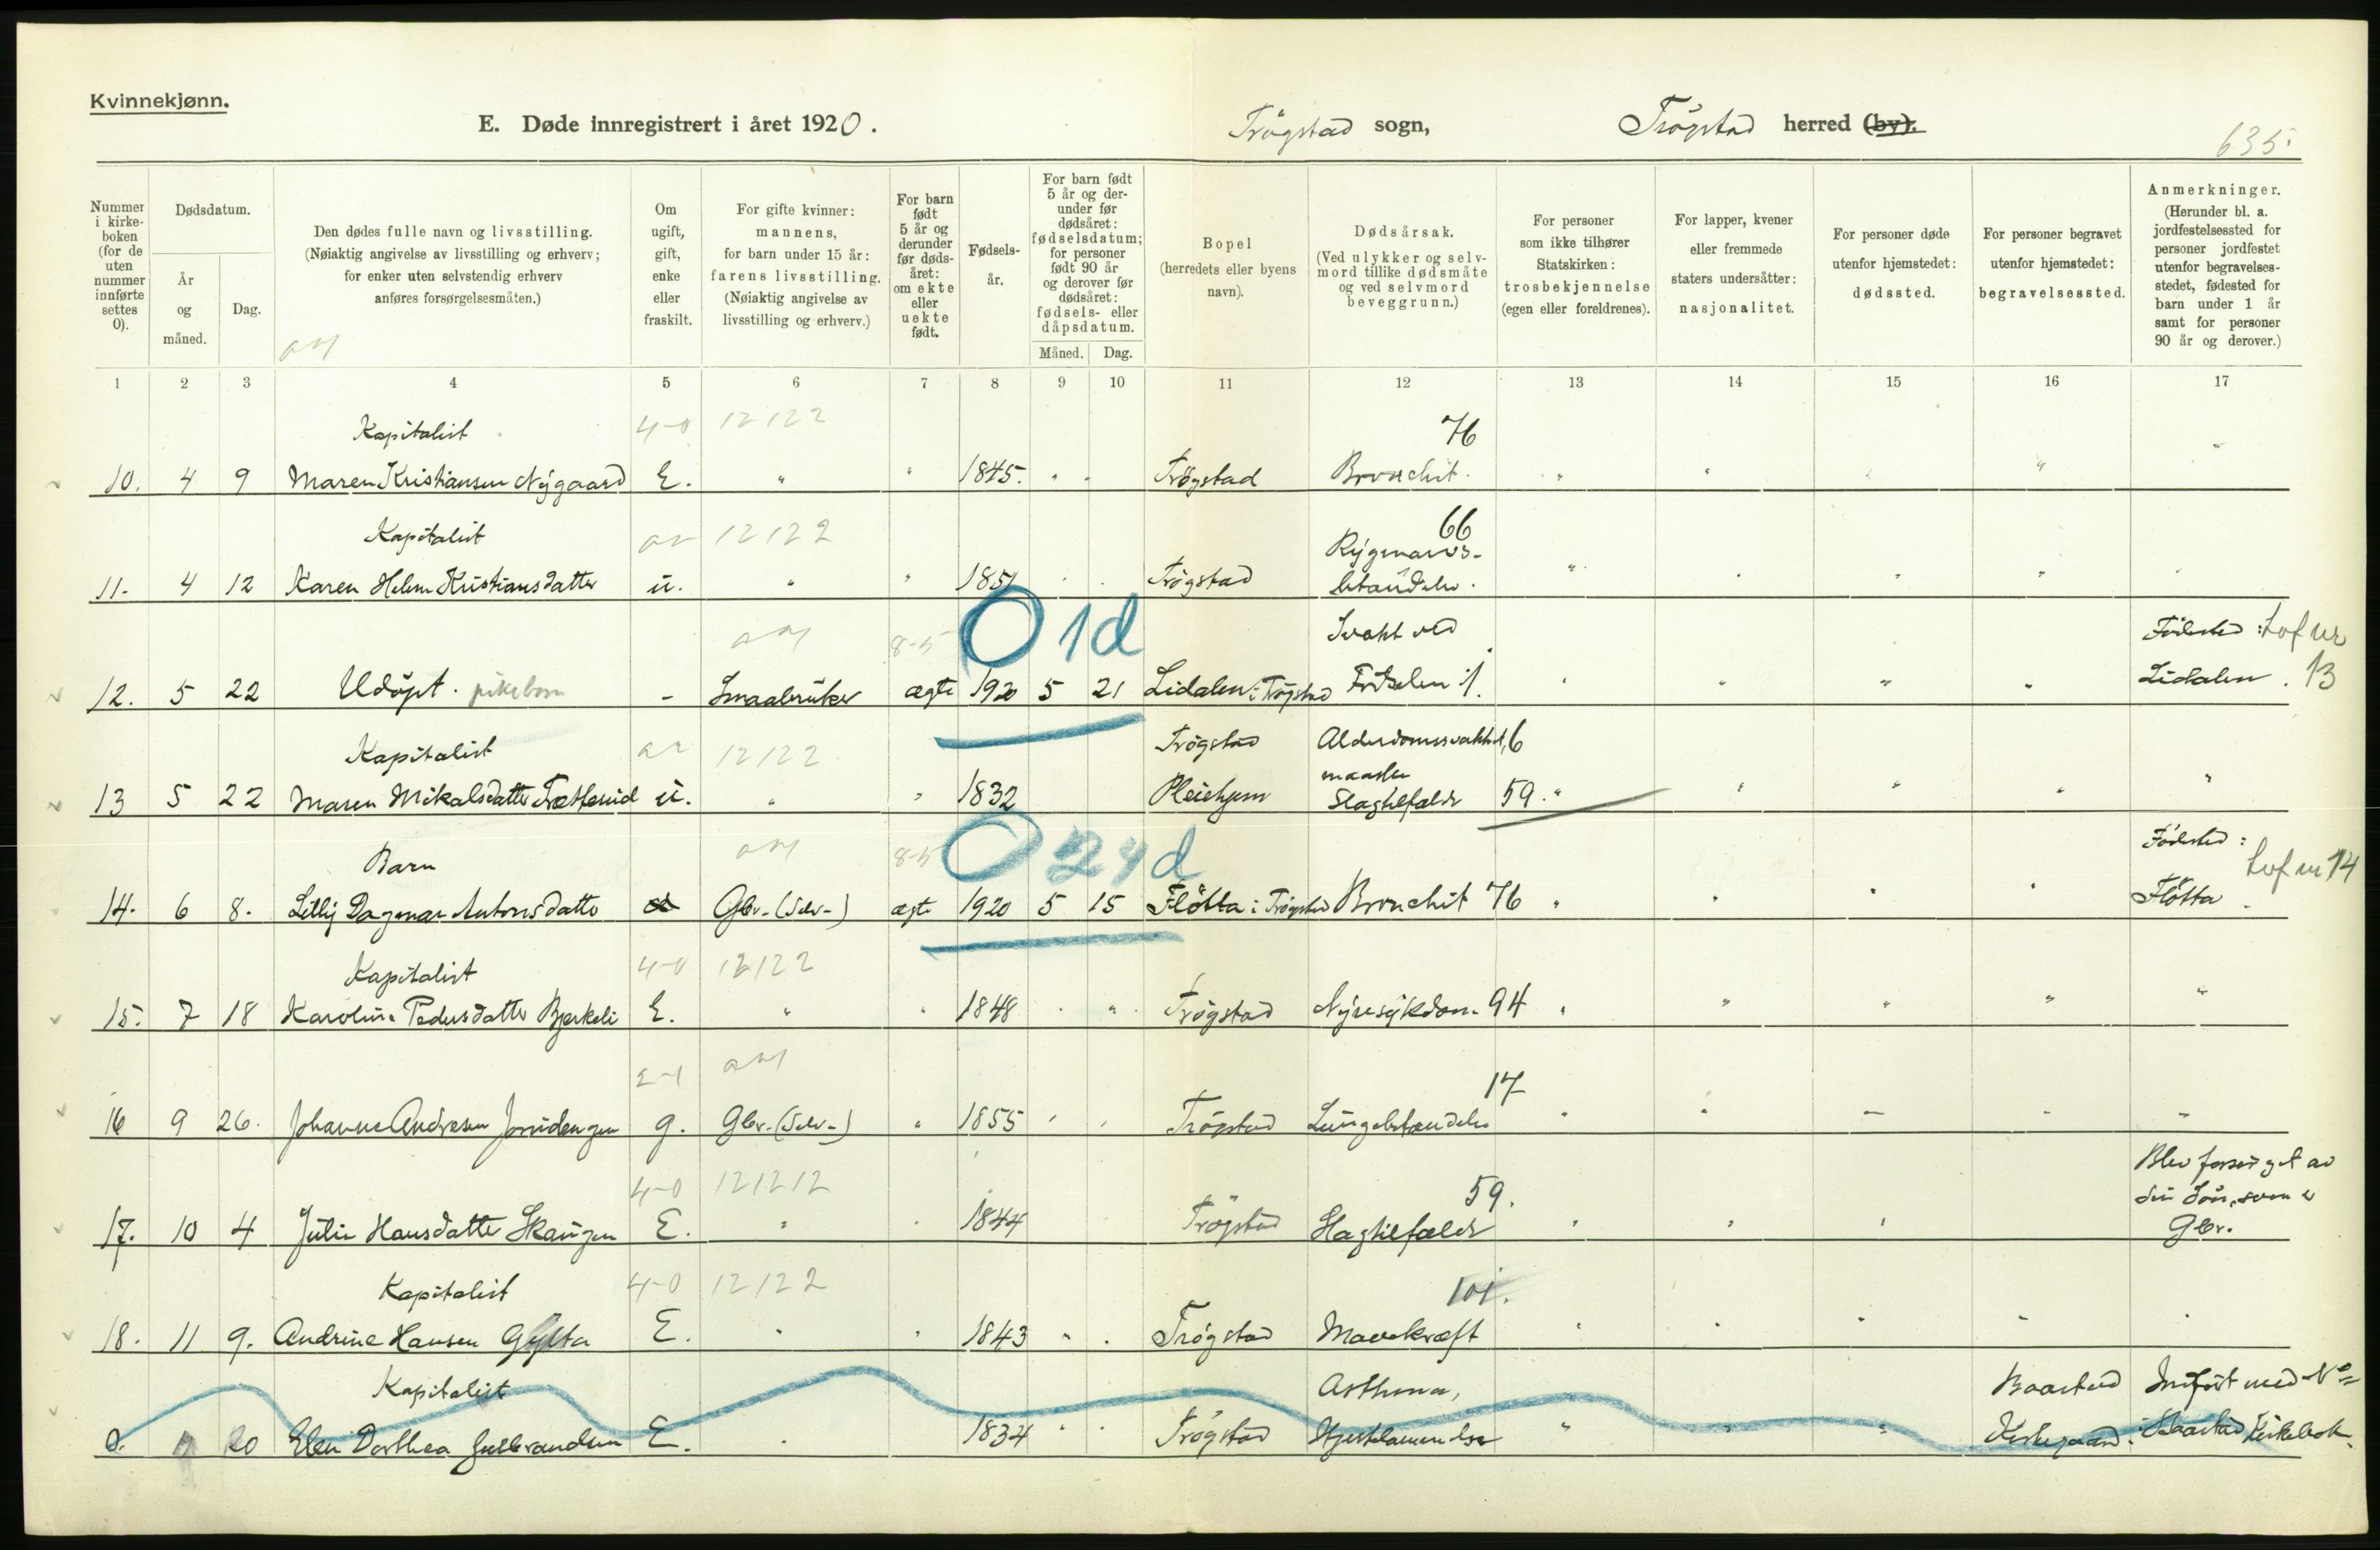 Kvinnekjønn.
E. Døde innregistrert i året 1920.
Trøgstad sogn,
Trøgstad herred (by).
635.
Nummer i kirke-boken (for de uten nummer innførte settes 0).
Dødsdatum.
År og måned.
Dag.
Den dødes fulle navn og livsstilling.
(Nøiaktig angivelse av livsstilling og erhverv;
for enker uten selvstendig erhverv
anføres forsørgelsesmåten.)
Om ugift, gift, enke eller fraskilt.
For gifte kvinner:
mannens,
for barn under 15 år:
farens livsstilling.
(Nøiaktig angivelse av
livsstilling og erhverv.)
For barn født 5 år og derunder før døds-året: om ekte eller uekte født.
Fødsels-år.
For barn født 5 år og der-under før dødsåret: fødselsdatum; for personer født 90 år og derover før dødsåret: fødsels- eller dåpsdatum.
Måned. Dag.
Bopel
(herredets eller byens
navn).
Dødsårsak.
(Ved ulykker og selv-
mord tillike dødsmåte
og ved selvmord
beveggrunn.)
For personer
som ikke tilhører
Statskirken:
trosbekjennelse
(egen eller foreldrenes).
For lapper, kvener
eller fremmede
staters undersåtter:
nasjonalitet.
For personer døde
utenfor hjemstedet:
dødssted.
For personer begravet
utenfor hjemstedet:
begravelsessted.
Anmerkninger.
(Herunder bl. a.
jordfestelsessted for
personer jordfestet
utenfor begravelses-
stedet, fødested for
barn under 1 år
samt for personer
90 år og derover.)
1 2 3 4 5 6 7 8 9 10 11 12 13 14 15 16 17
Kapitalist 4-0 12122 76
10. 4 9 Maren Kristiansen Nygaard E. " " 1845. " " Trøgstad Bronchit. " " " " "
Kapitalist 12122 66
Rygmarvs-
11. 4 12 Karen Helene Kristiansdatter u. " " 1851 Trøgstad betændelse.
8-5 0 1d Svakt ved Fødested:
12. 5 22 Udøpt. pikebarn - Smaabruker ægte 1920 5 21 Lidalen i Trøgstad Fødselen Lidalen. 13
Kapitalist 12122 Trøgstad Alderdomssvakhet, 6
maaske
13 5 22 Maren Mikalsdatter u. " " 1832 Pleiehjem Slagtilfælde 59. "
Barn 8-5 0 24d Fødested:
14. 6 8. Lilly Dagmar Antonsdatter Gbr. (Selv-) ægte 1920 5 15 Fløtta i Trøgstad Bronchit 76 " Fløtta
14
Kapitalist 4-0 12122
15. 7 18 Karoline Pedersdatter Bjerkeli E. " " 1848 Trøgstad Nyresykdom. 94 "
2-1 17
16 9 26. Johanne Andresen g. Gbr. (Selv-) " 1855 Trøgstad Lungebetændelse
4-0 121212 59. Blev forsørget av
sin Søn, som er
17. 10 4 Julie Hansdatter Skaugen E. " 1844 Trøgstad Slagtilfælde Gbr.
Kapitalist 4-0 12122 101.
18. 11 9. Andrine Hansen E. " 1843 Trøgstad Mavekræft
Kapitalist Asthma, Baastad Indført med No
0. 20 Elen Dorthea Gulbrandsen E. 1834 Trøgstad Kirkegaard. i Baastad Kirkebok.